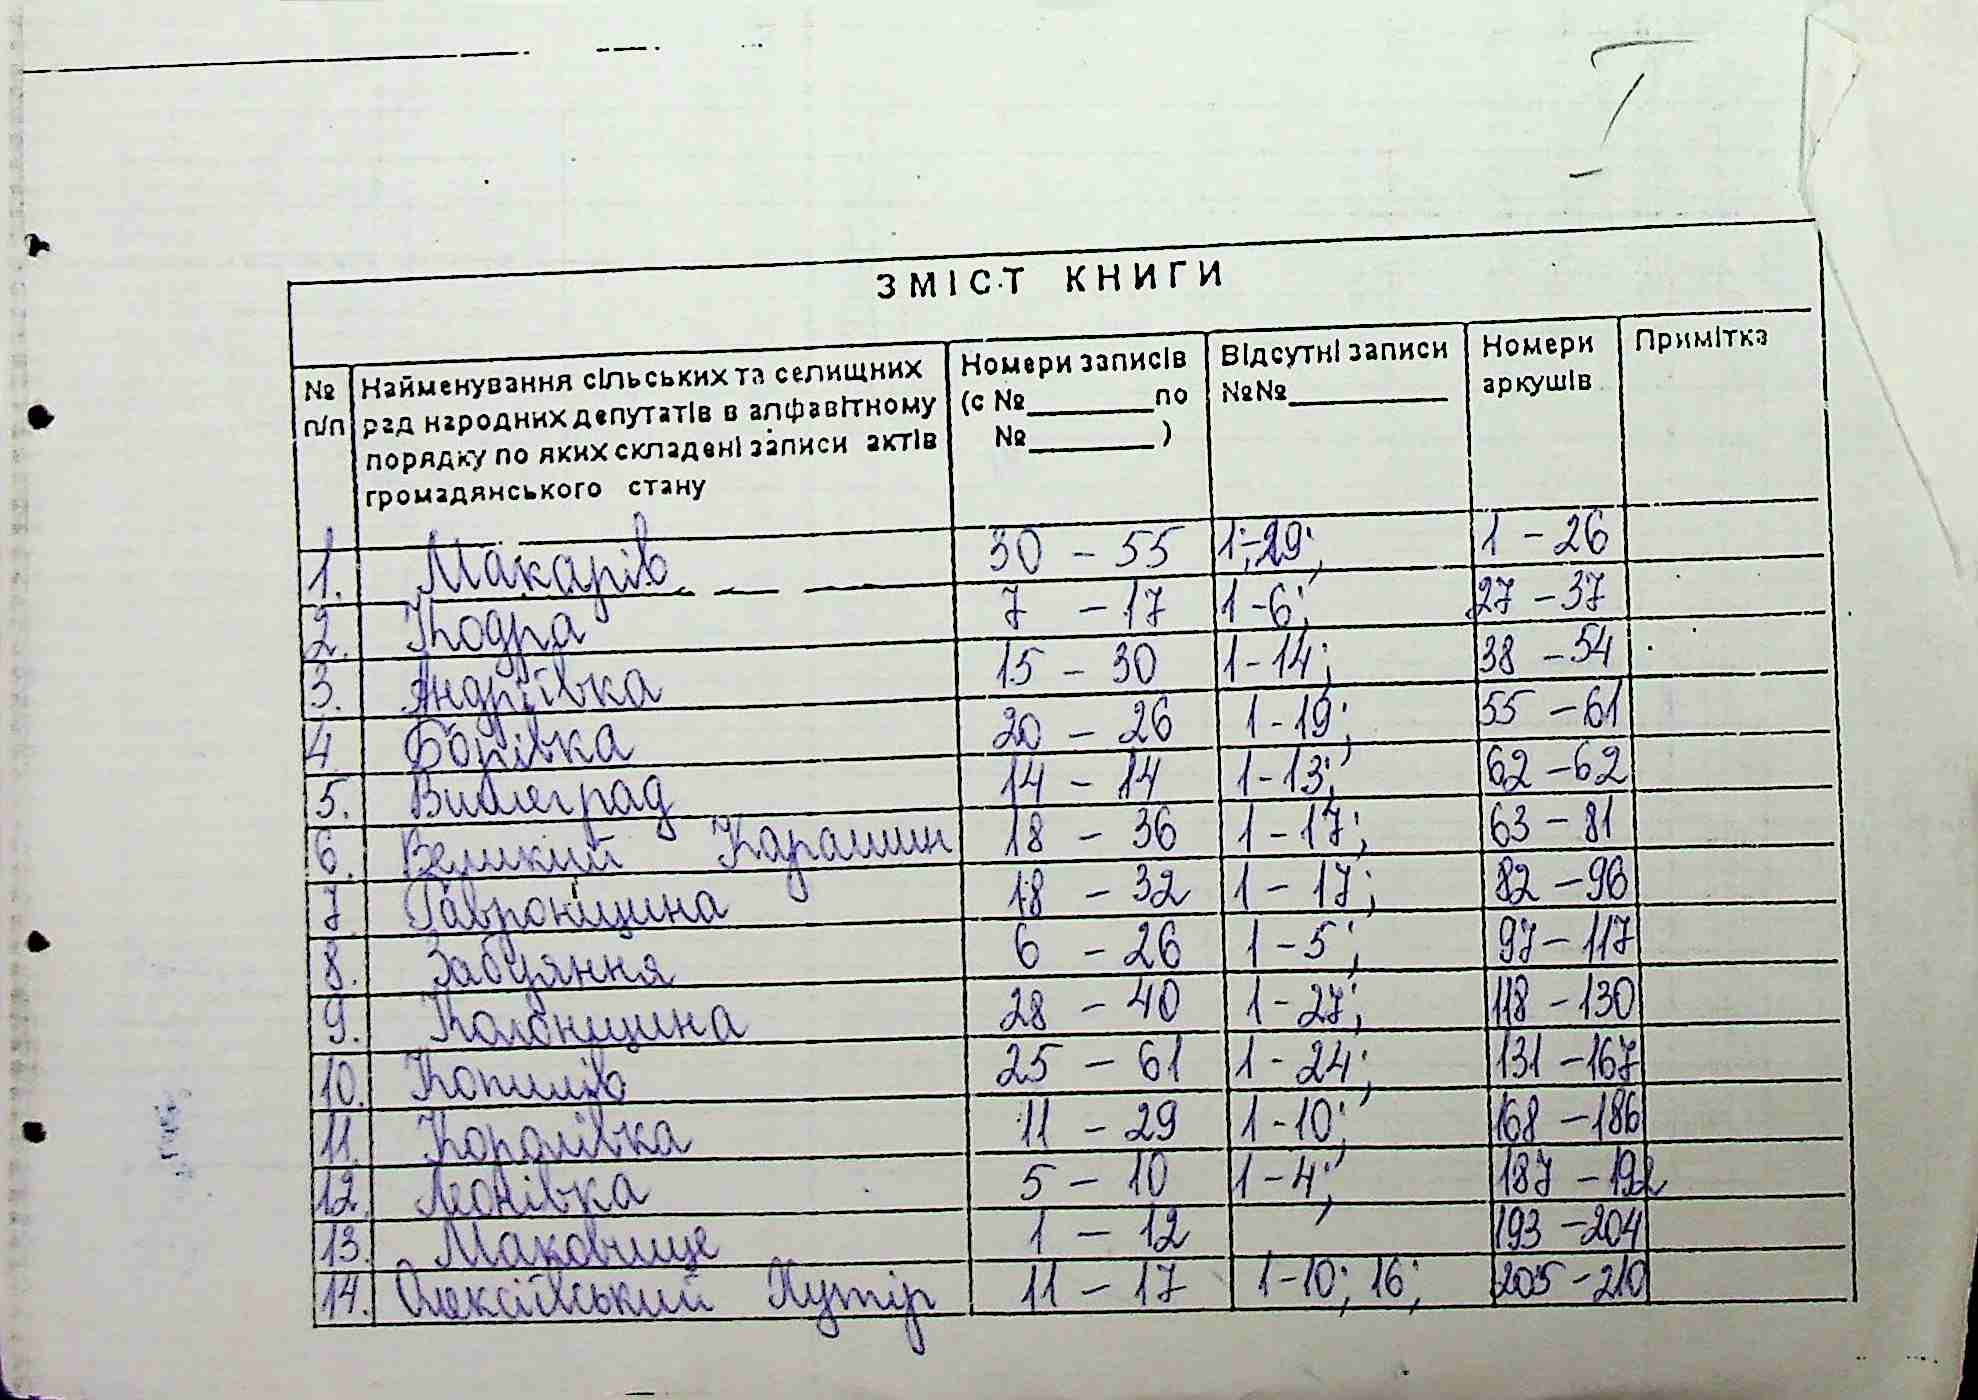 I
ЗМІСТ КНИГИ
№ п/п | Найменування сільських та селищних рад народних депутатів в алфавітному порядку по яких складені записи актів громадянського стану | Номери записів (с №________по №________) | Відсутні записи №№__________ | Номери аркушів | Примітка
1. Макарів 30 - 55 1-29; 1 - 26
2. Кодра 7 - 17 1-6; 27 - 37
3. Андріївка 15 - 30 1-14; 38 - 54
4. Борівка 20 - 26 1-19; 55 - 61
5. Вишеград 14 - 14 1-13; 62 - 62
6. Великий Карашин 18 - 36 1-17; 63 - 81
7. Гавронщина 18 - 32 1-17; 82 - 96
8. Забуяння 6 - 26 1-5; 97 - 117
9. Колонщина 28 - 40 1-27; 118 - 130
10. Копилів 25 - 61 1-24; 131 - 167
11. Королівка 11 - 29 1-10; 168 - 186
12. Леонівка 5 - 10 1-4; 187 - 192
13. Маковище 1 - 12 193 - 204
14. Олексіївський Хутір 11 - 17 1-10; 16; 205 - 210